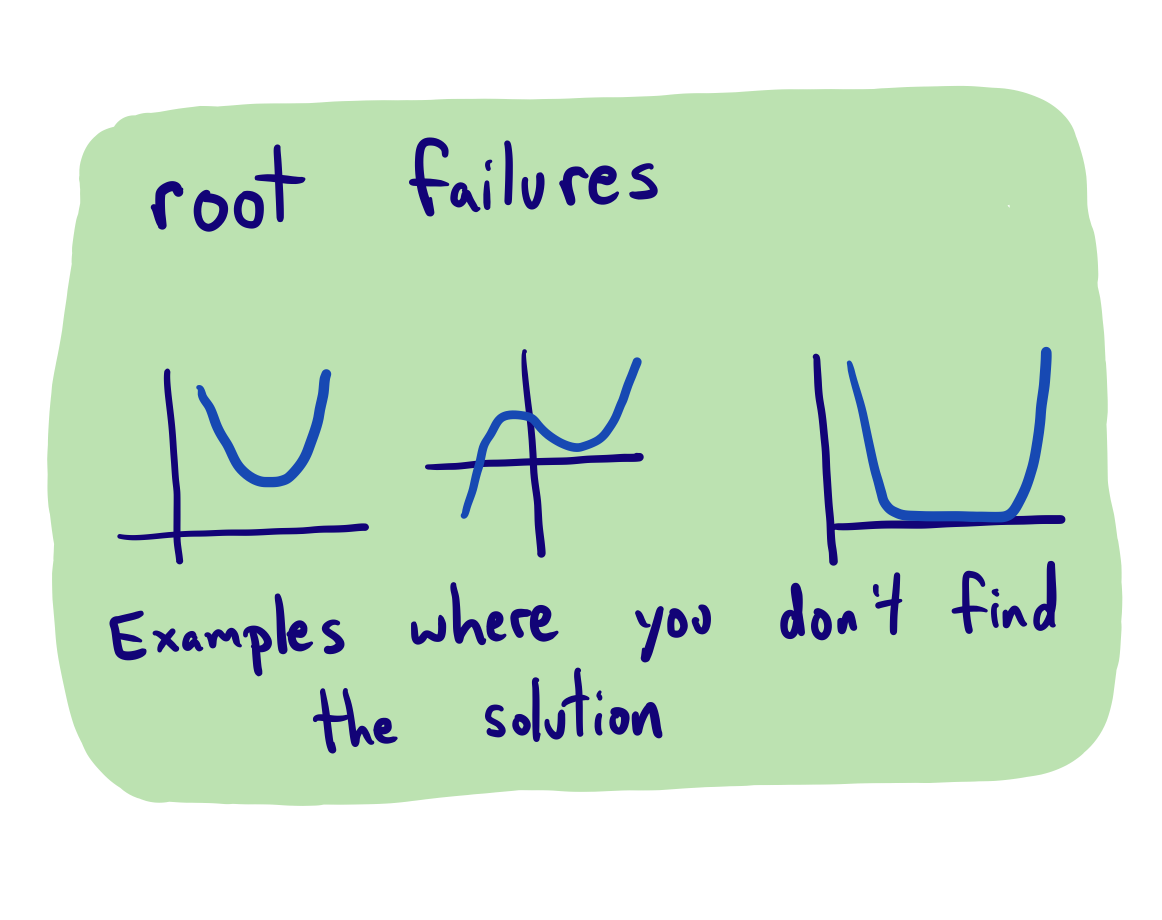 root failures
Examples where you don't find
the solution